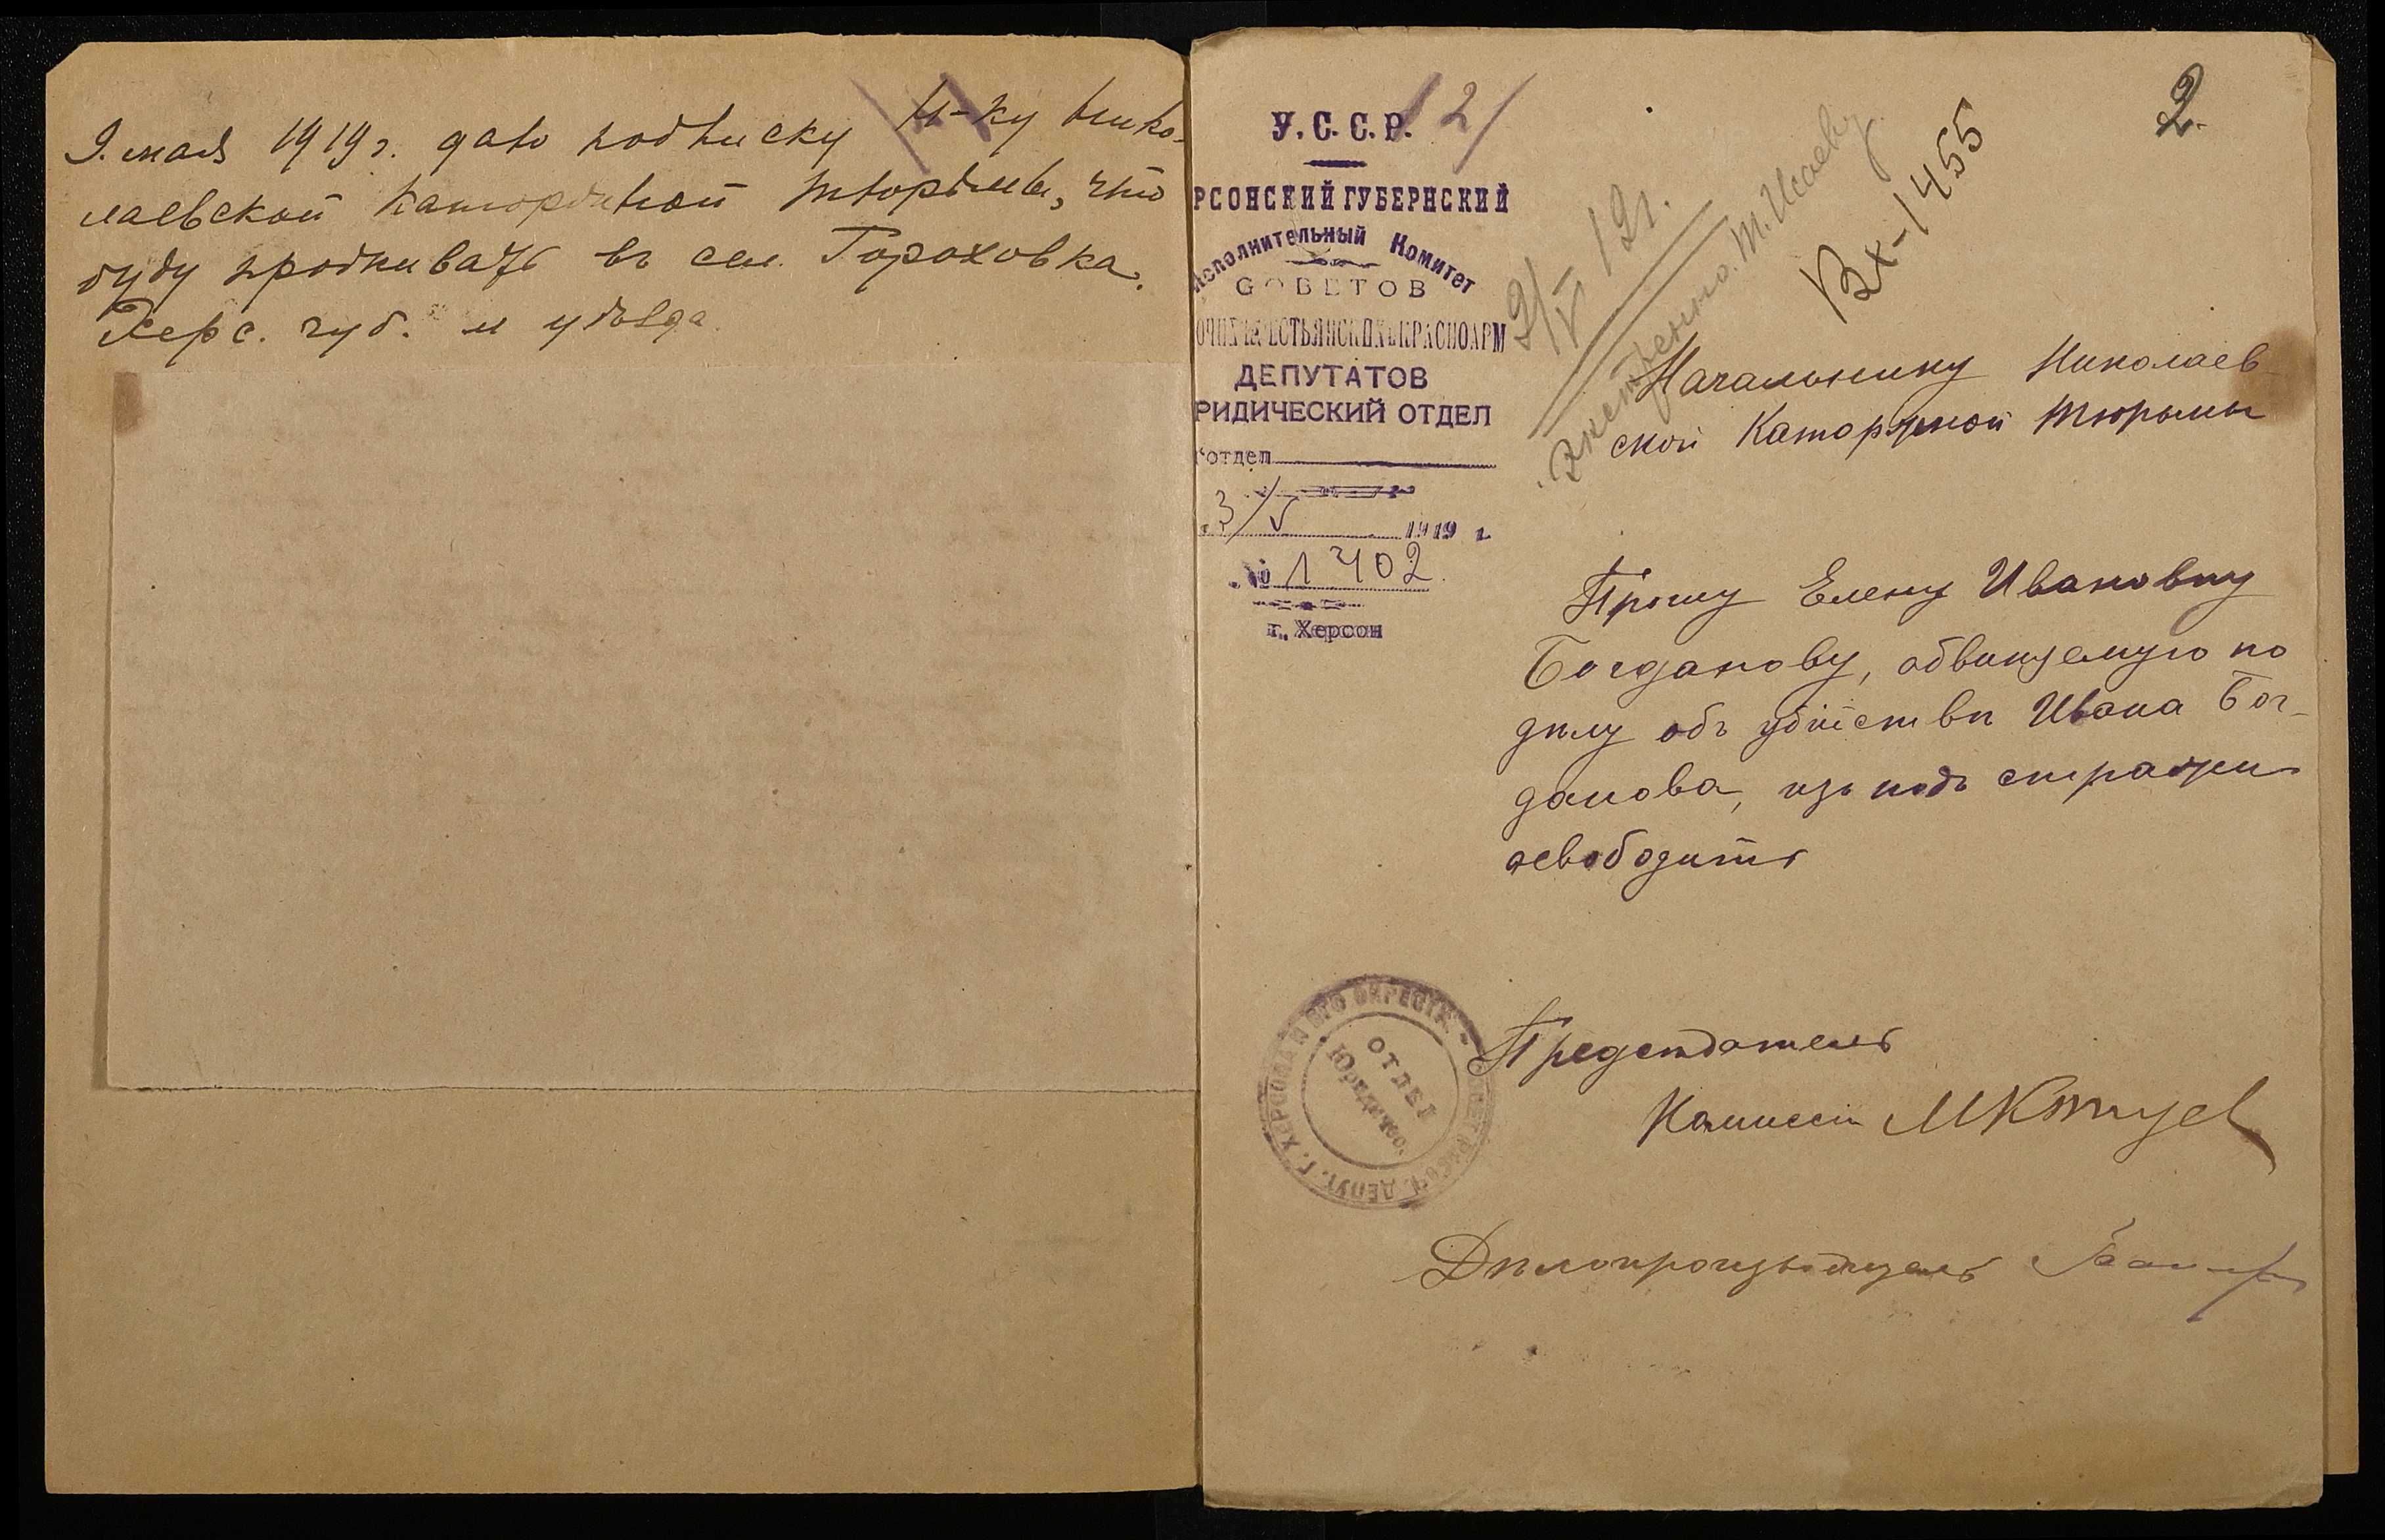 9. мая 1919 г. даю подписку Н-ку Нико-
лаевской каторжной тюрьмы, что
буду проживать въ сел. Гороховка.
Херс. губ. и уѣзда
2
У.С.С.Р.
РСОНСКИЙ ГУБЕРНСКИЙ
Исполнительный Комитет
СОВЕТОВ
ОЧИХ КРЕСТЬЯНСКИХ И КРАСНОАРМ
ДЕПУТАТОВ
РИДИЧЕСКИЙ ОТДЕЛ
отдел
3/V 1919 г.
№ 1402
г. Херсон
2.
9/V 19г.
Вх-1455
Экстренно. т. Исаеву
Начальнику Николаев-
ской Каторжной тюрьмы
Прошу Елену Ивановну
Богданову, обвиняемую по
дѣлу объ убійствѣ Ивана Бог-
данова, изъ подъ стражи
освободить
Предсѣдатель
Комиссіи
Дѣлопроизводитель
Г. ХЕРСОНА И ЕГО ОКРЕСТН. СОВЕТ РАБОЧ. ДЕПУТ.
ОТДЕЛ
Юридичес.